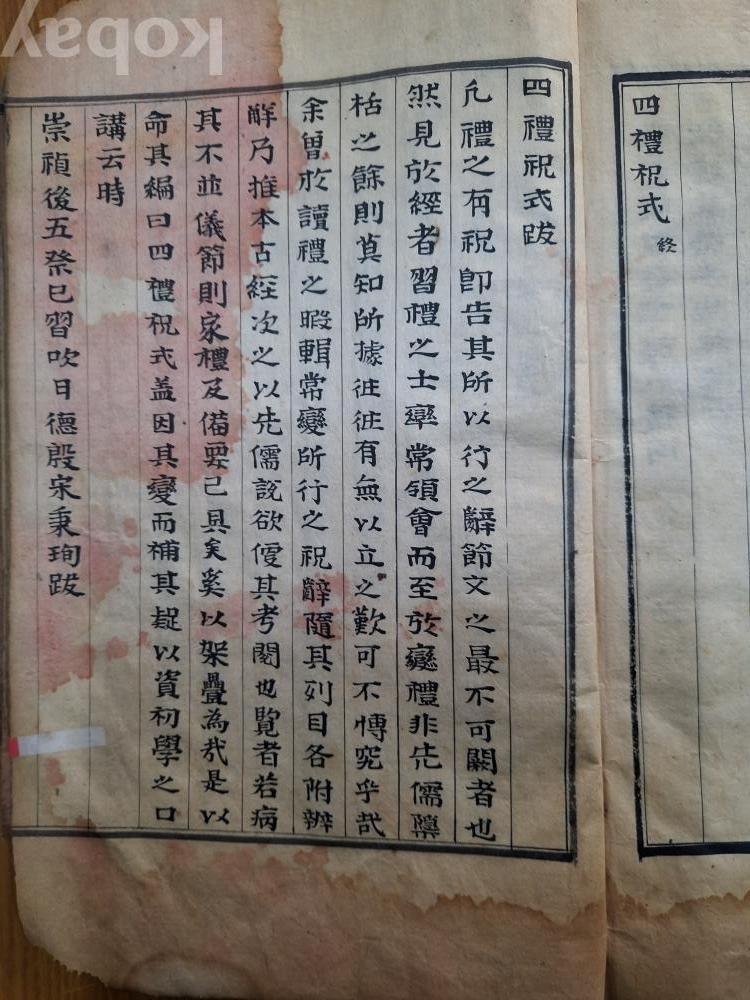 四禮祝式 終
四禮祝式跋
凡禮之有祝卽告其所以行之辭節文之最不可闕者也
然見於經者習禮之士率常領會而至於變禮非先儒檃
栝之餘則莫知所據往往有無以立之歎可不慱究乎哉
余曽於讀禮之暇輯常變所行之祝辭隨其列目各附辨
觧乃推本古經次之以先儒說欲便其考閱也覽者若病
其不並儀節則家禮及備要已具矣奚以架疊為哉是以
命其編曰四禮祝式盖因其變而補其疑以資初學之口
講云時
崇禎後五癸巳習吹日德殷宋秉珣跋
kobay